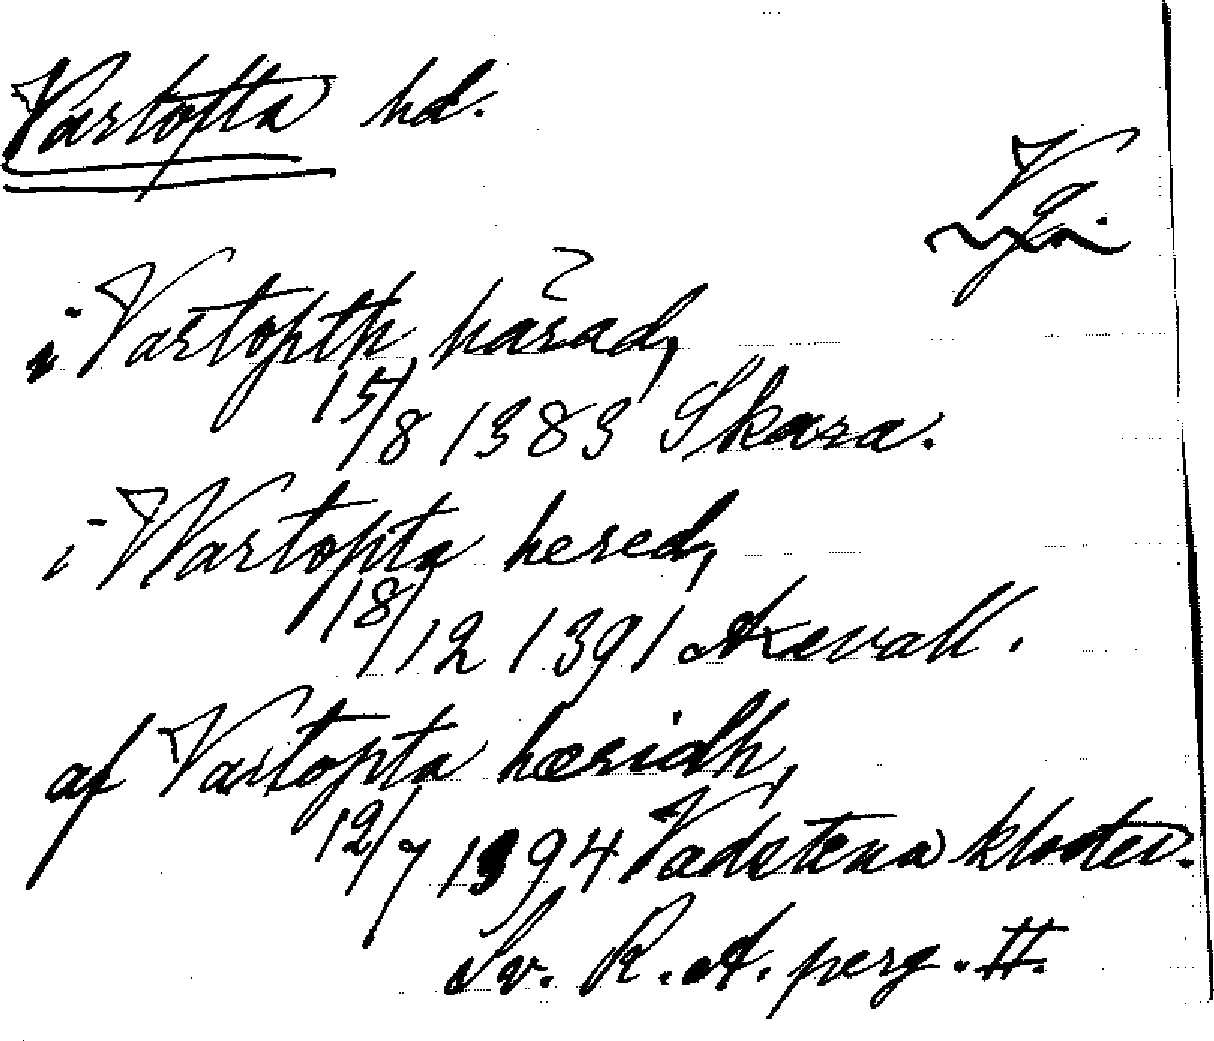 Vartofta hd.
Vg.
i Vartopth harad,
15/8 1383 Skara.
i Wartopta hered,
18/12 1391 Axevall.
af Vartopta hæridh,
12/7 1394 Vadstena kloster.
Sv. R. A. perg. II.